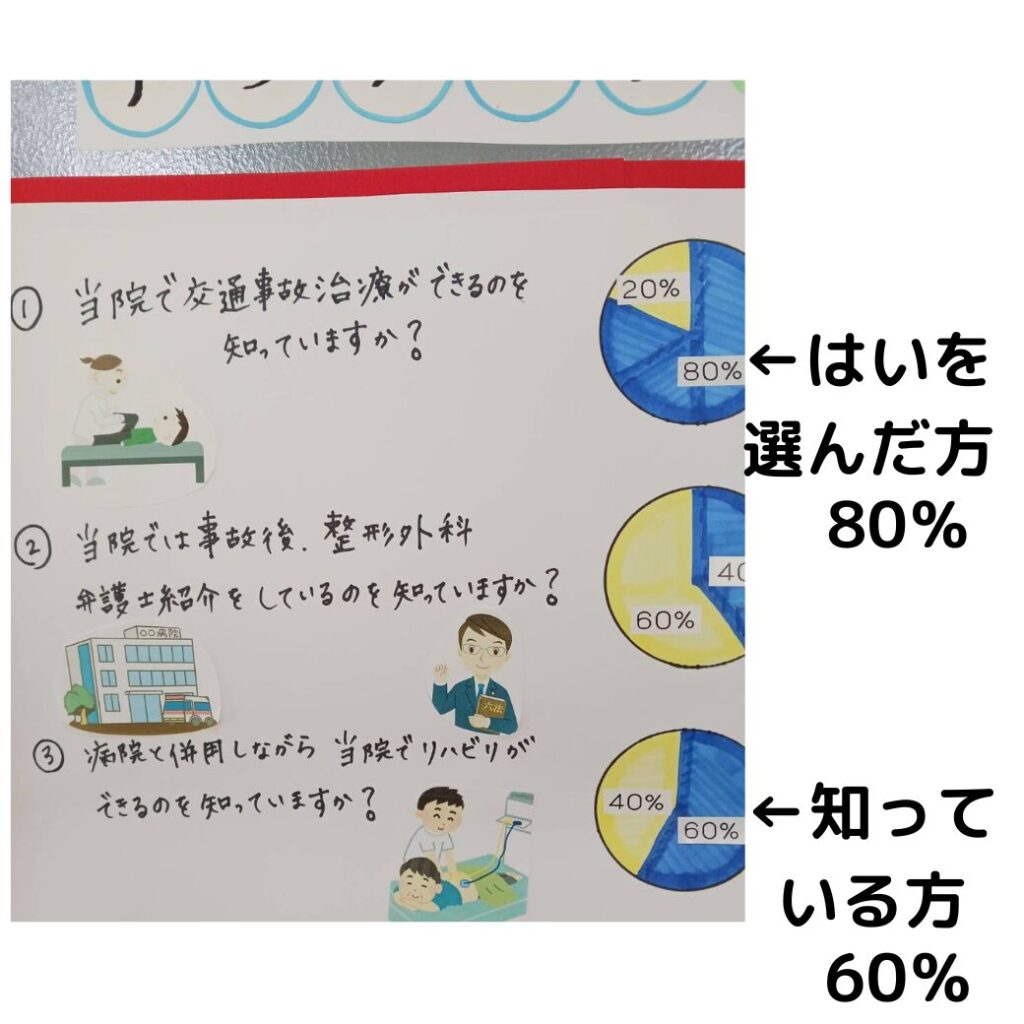 ① 当院で交通事故治療ができるのを
知っていますか？
20%
80%
←はいを
選んだ方
80%
② 当院では事故後、整形外科
弁護士紹介をしているのを知っていますか？
〇〇病院
六法
60%
③ 病院と併用しながら 当院でリハビリが
できるのを知っていますか？
40%
60%
←知って
いる方
60%